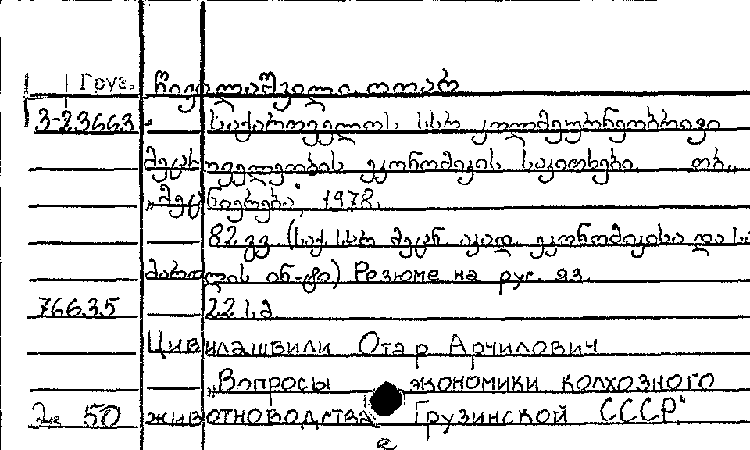 Груз. წივილაშვილი ოთარ
3-23663. საქართველოს სსრ კოლმეურნეობრივი
მეცხოველეობის ეკონომიკის საკითხები. თბ.,
„მეცნიერება", 1978.
82 გვ. (საქ. სსრ მეცნ. აკად. ეკონომიკისა და
სამართლის ინ-ტი) Резюме на рус. яз.
76635 221.ა
Цивилашвили Отар Арчилович
„Вопросы экономики колхозного
50 животноводства Грузинской СССР"